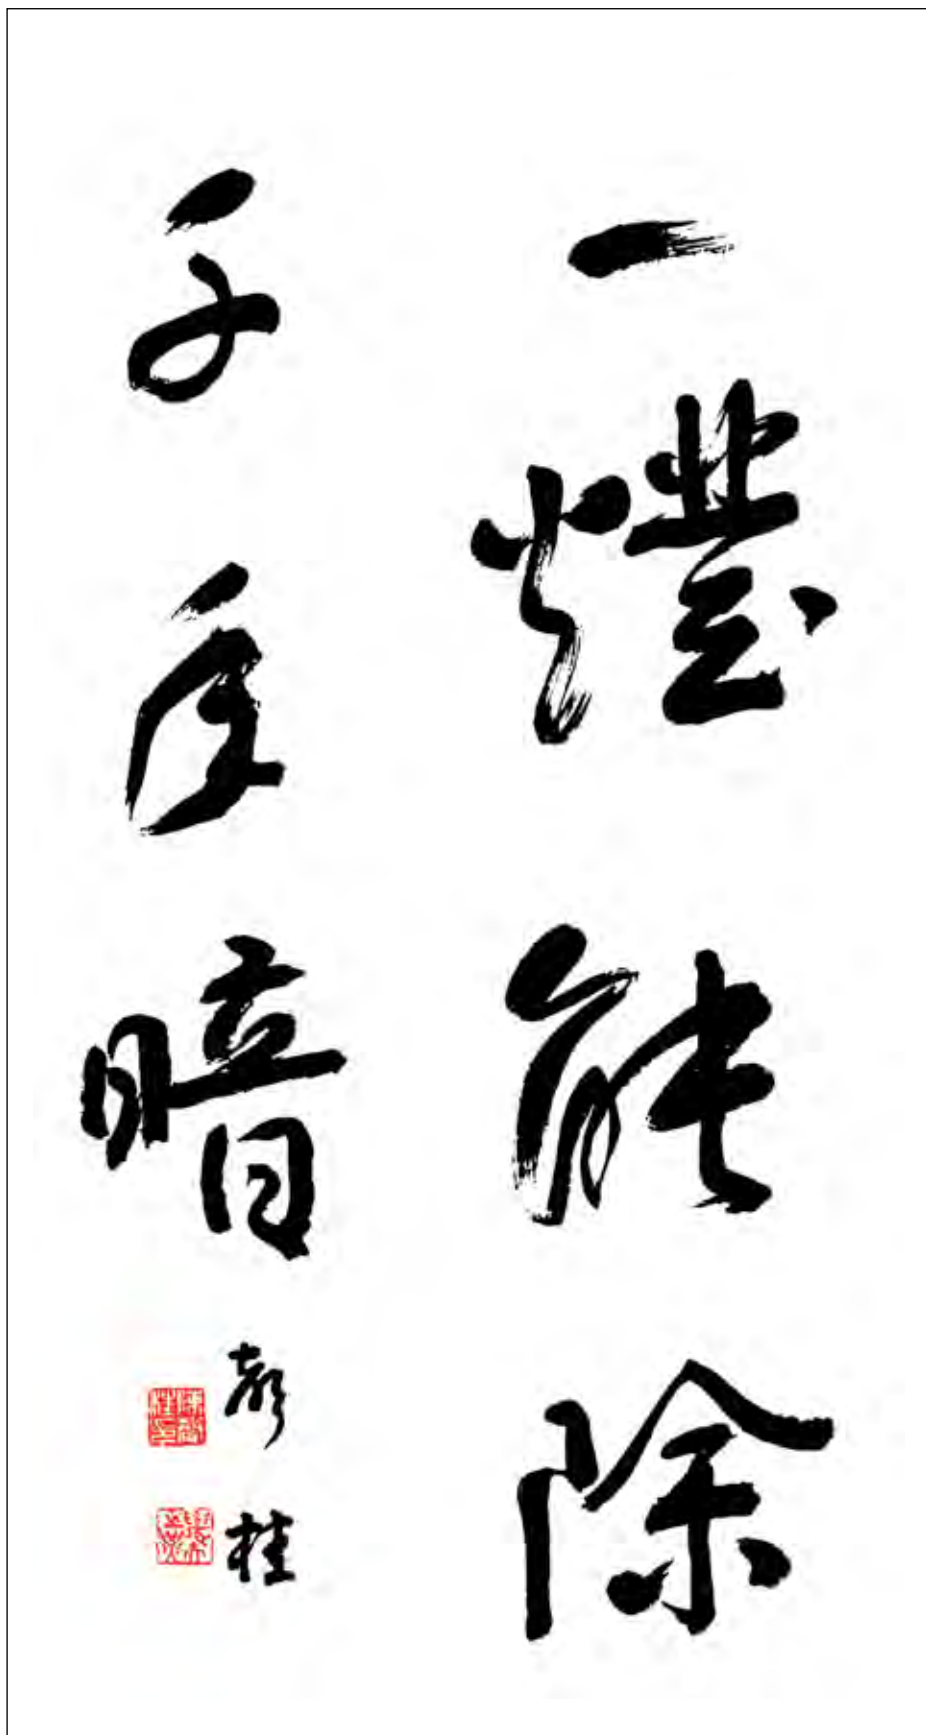 一燈能除
千年暗
桂